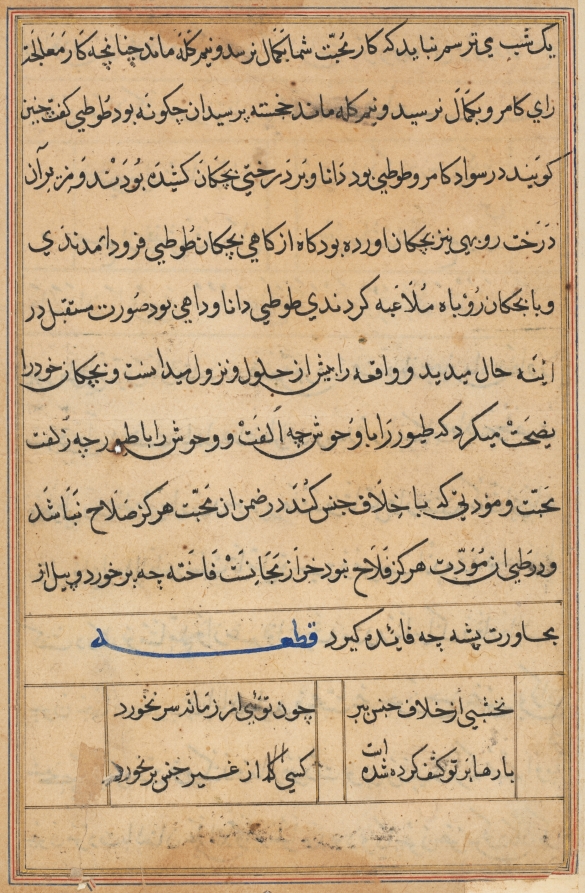 یک شب می ترسم نباید که کار محبت شما بکمال نرسد و نیم کله ماند چنانچه کار معالجت
رای کامرو بکمال نرسید و نیم کله ماند خجسته پرسید ان چکونه بود طوطی کفت چنین
کویند در سواد کامرو طوطی بود دانا و بر درختی بچکان کشیده بودند و در زیر آن
درخت روبهی نیز بچکان اورده بود کاه از کاهی بچکان طوطی فرود امدندی
و با بچکان روباه ملاعبه کردندی طوطی دانا و داهی بود صورت مستقبل در
اینه حال میدید و واقعه را بیش از حلول و نزول میدانست و بچکان خود را
نصیحت میکرد که طیور را با وحوش چه الفت و وحوش را با طیور چه زلفت
محبت و مودتی که با خلاف جنس کنند در ضمن ان محبت هرکز صلاح نباشد
و در طی ان مودت هرکز فلاح نبود خر از مجانست فاخته چه برخورد و پیل از
مجاورت پشه چه فائده کیرد قطعه
نخشبی از خلاف جنس ببر چون توئی از زمانه سر نخورد
بارها بر تو کشف کرده شده است کسی که از غیر جنس بر نخورد